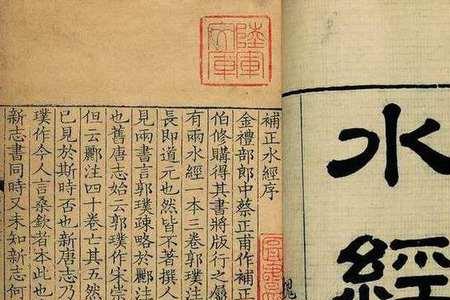 水經
補正水經序
金禮部郎中蔡正甫作補
伯修購得其書將版行之屬
有兩水經一本三卷郭璞
長即道元也然皆不著撰人
見兩書言郭璞疎略於酈注
也舊唐志始云郭璞作宋崇
但云酈注四十卷亡其五然
已見於斯時否也新唐志乃
璞作今人言桑欽者本此也
新志書同時又未知新志何
陸軍